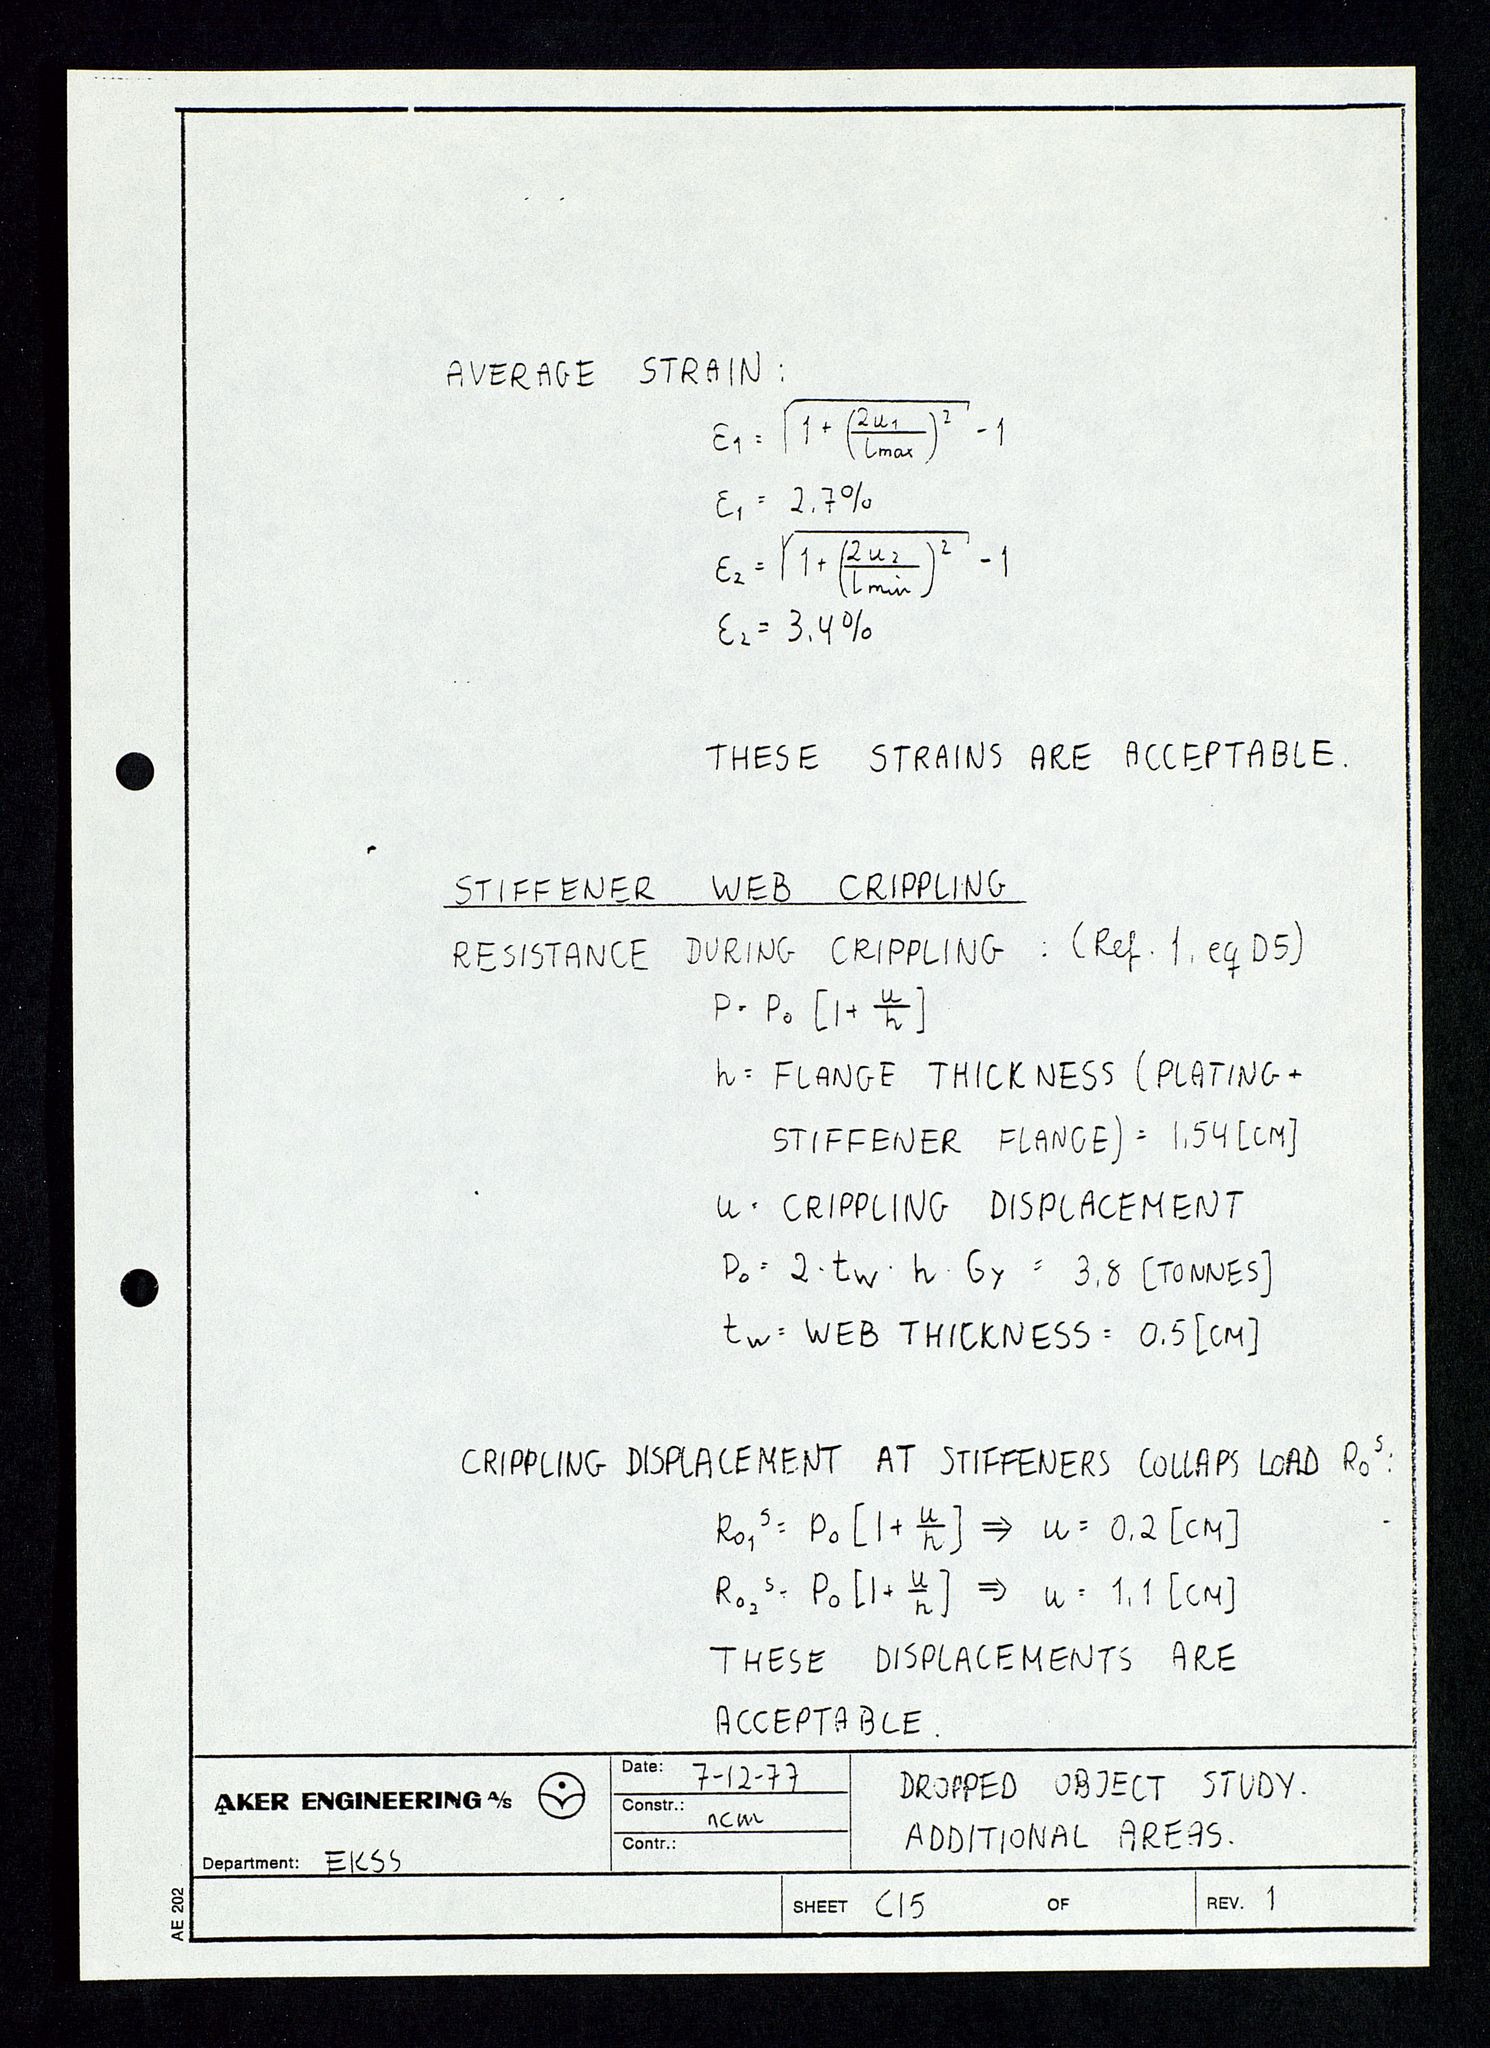 AVERAGE STRAIN:
ε₁ = √(1 + (2u₁/lmax)²) - 1
ε₁ = 2.7%
ε₂ = √(1 + (2u₂/lmin)²) - 1
ε₂ = 3.4%
THESE STRAINS ARE ACCEPTABLE.
STIFFENER WEB CRIPPLING
RESISTANCE DURING CRIPPLING : (Ref. 1. eq D5)
P = P₀ [1 + u/h]
h = FLANGE THICKNESS (PLATING +
STIFFENER FLANGE) = 1.54 [CM]
u = CRIPPLING DISPLACEMENT
P₀ = 2 · tw · h · σy = 3.8 [TONNES]
tw = WEB THICKNESS = 0.5 [CM]
CRIPPLING DISPLACEMENT AT STIFFENERS COLLAPS LOAD R₀ˢ:
R₀₁ˢ = P₀ [1 + u/h] ⇒ u = 0.2 [CM]
R₀₂ˢ = P₀ [1 + u/h] ⇒ u = 1.1 [CM]
THESE DISPLACEMENTS ARE
ACCEPTABLE.
AKER ENGINEERING A/S
Department: EKSS
Date: 7-12-77
Constr.: ncm
Contr.:
DROPPED OBJECT STUDY.
ADDITIONAL AREAS.
SHEET C15 OF
REV. 1
AE 202